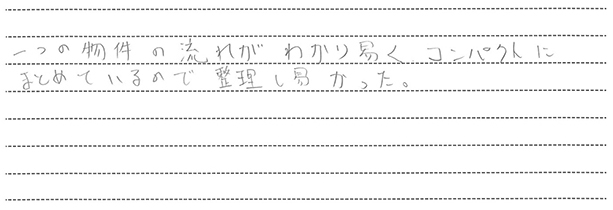 一つの物件の流れがわかり易く コンパクトに
まとめているので整理し易かった。